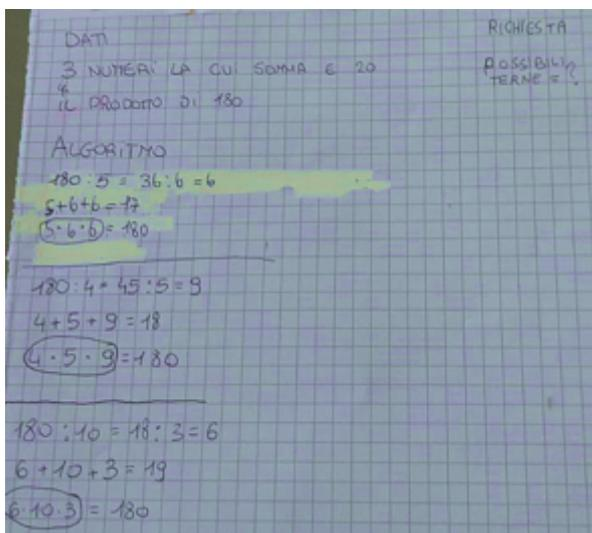 DATI
3 NUMERI LA CUI SOMMA È 20
&
IL PRODOTTO DI 180
RICHIESTA
POSSIBILI
TERNE = ?
ALGORITMO
180 : 5 = 36 : 6 = 6
5+6+6 = 17
5·6·6 = 180
180 : 4 = 45 : 5 = 9
4 + 5 + 9 = 18
4 · 5 · 9 = 180
180 : 10 = 18 : 3 = 6
6 + 10 + 3 = 19
6·10·3 = 180